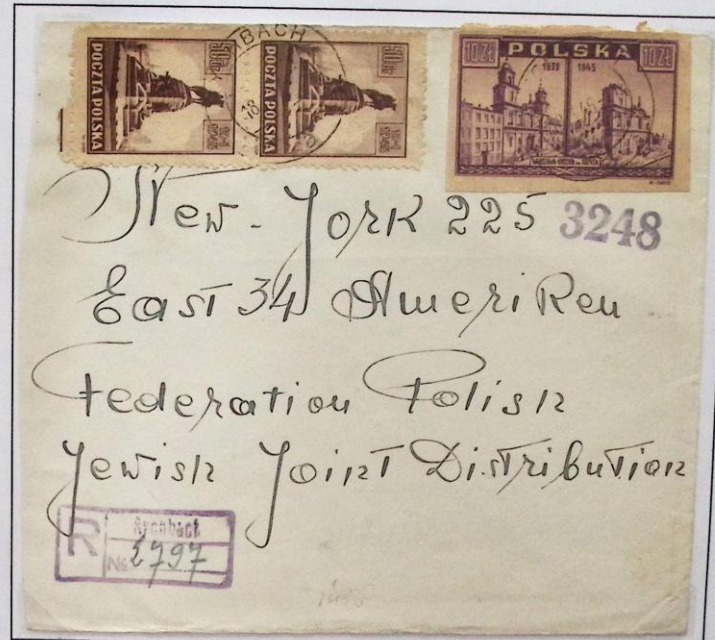 POCZTA POLSKA
50 gr
POCZTA POLSKA
50 gr
BACH
18
10 ZŁ POLSKA 10 ZŁ
1939 1945
New-York 225
3248
East 34 Ameriken
Federation Polish
Jewish Joint Distribution
R Rychbach
No 2797